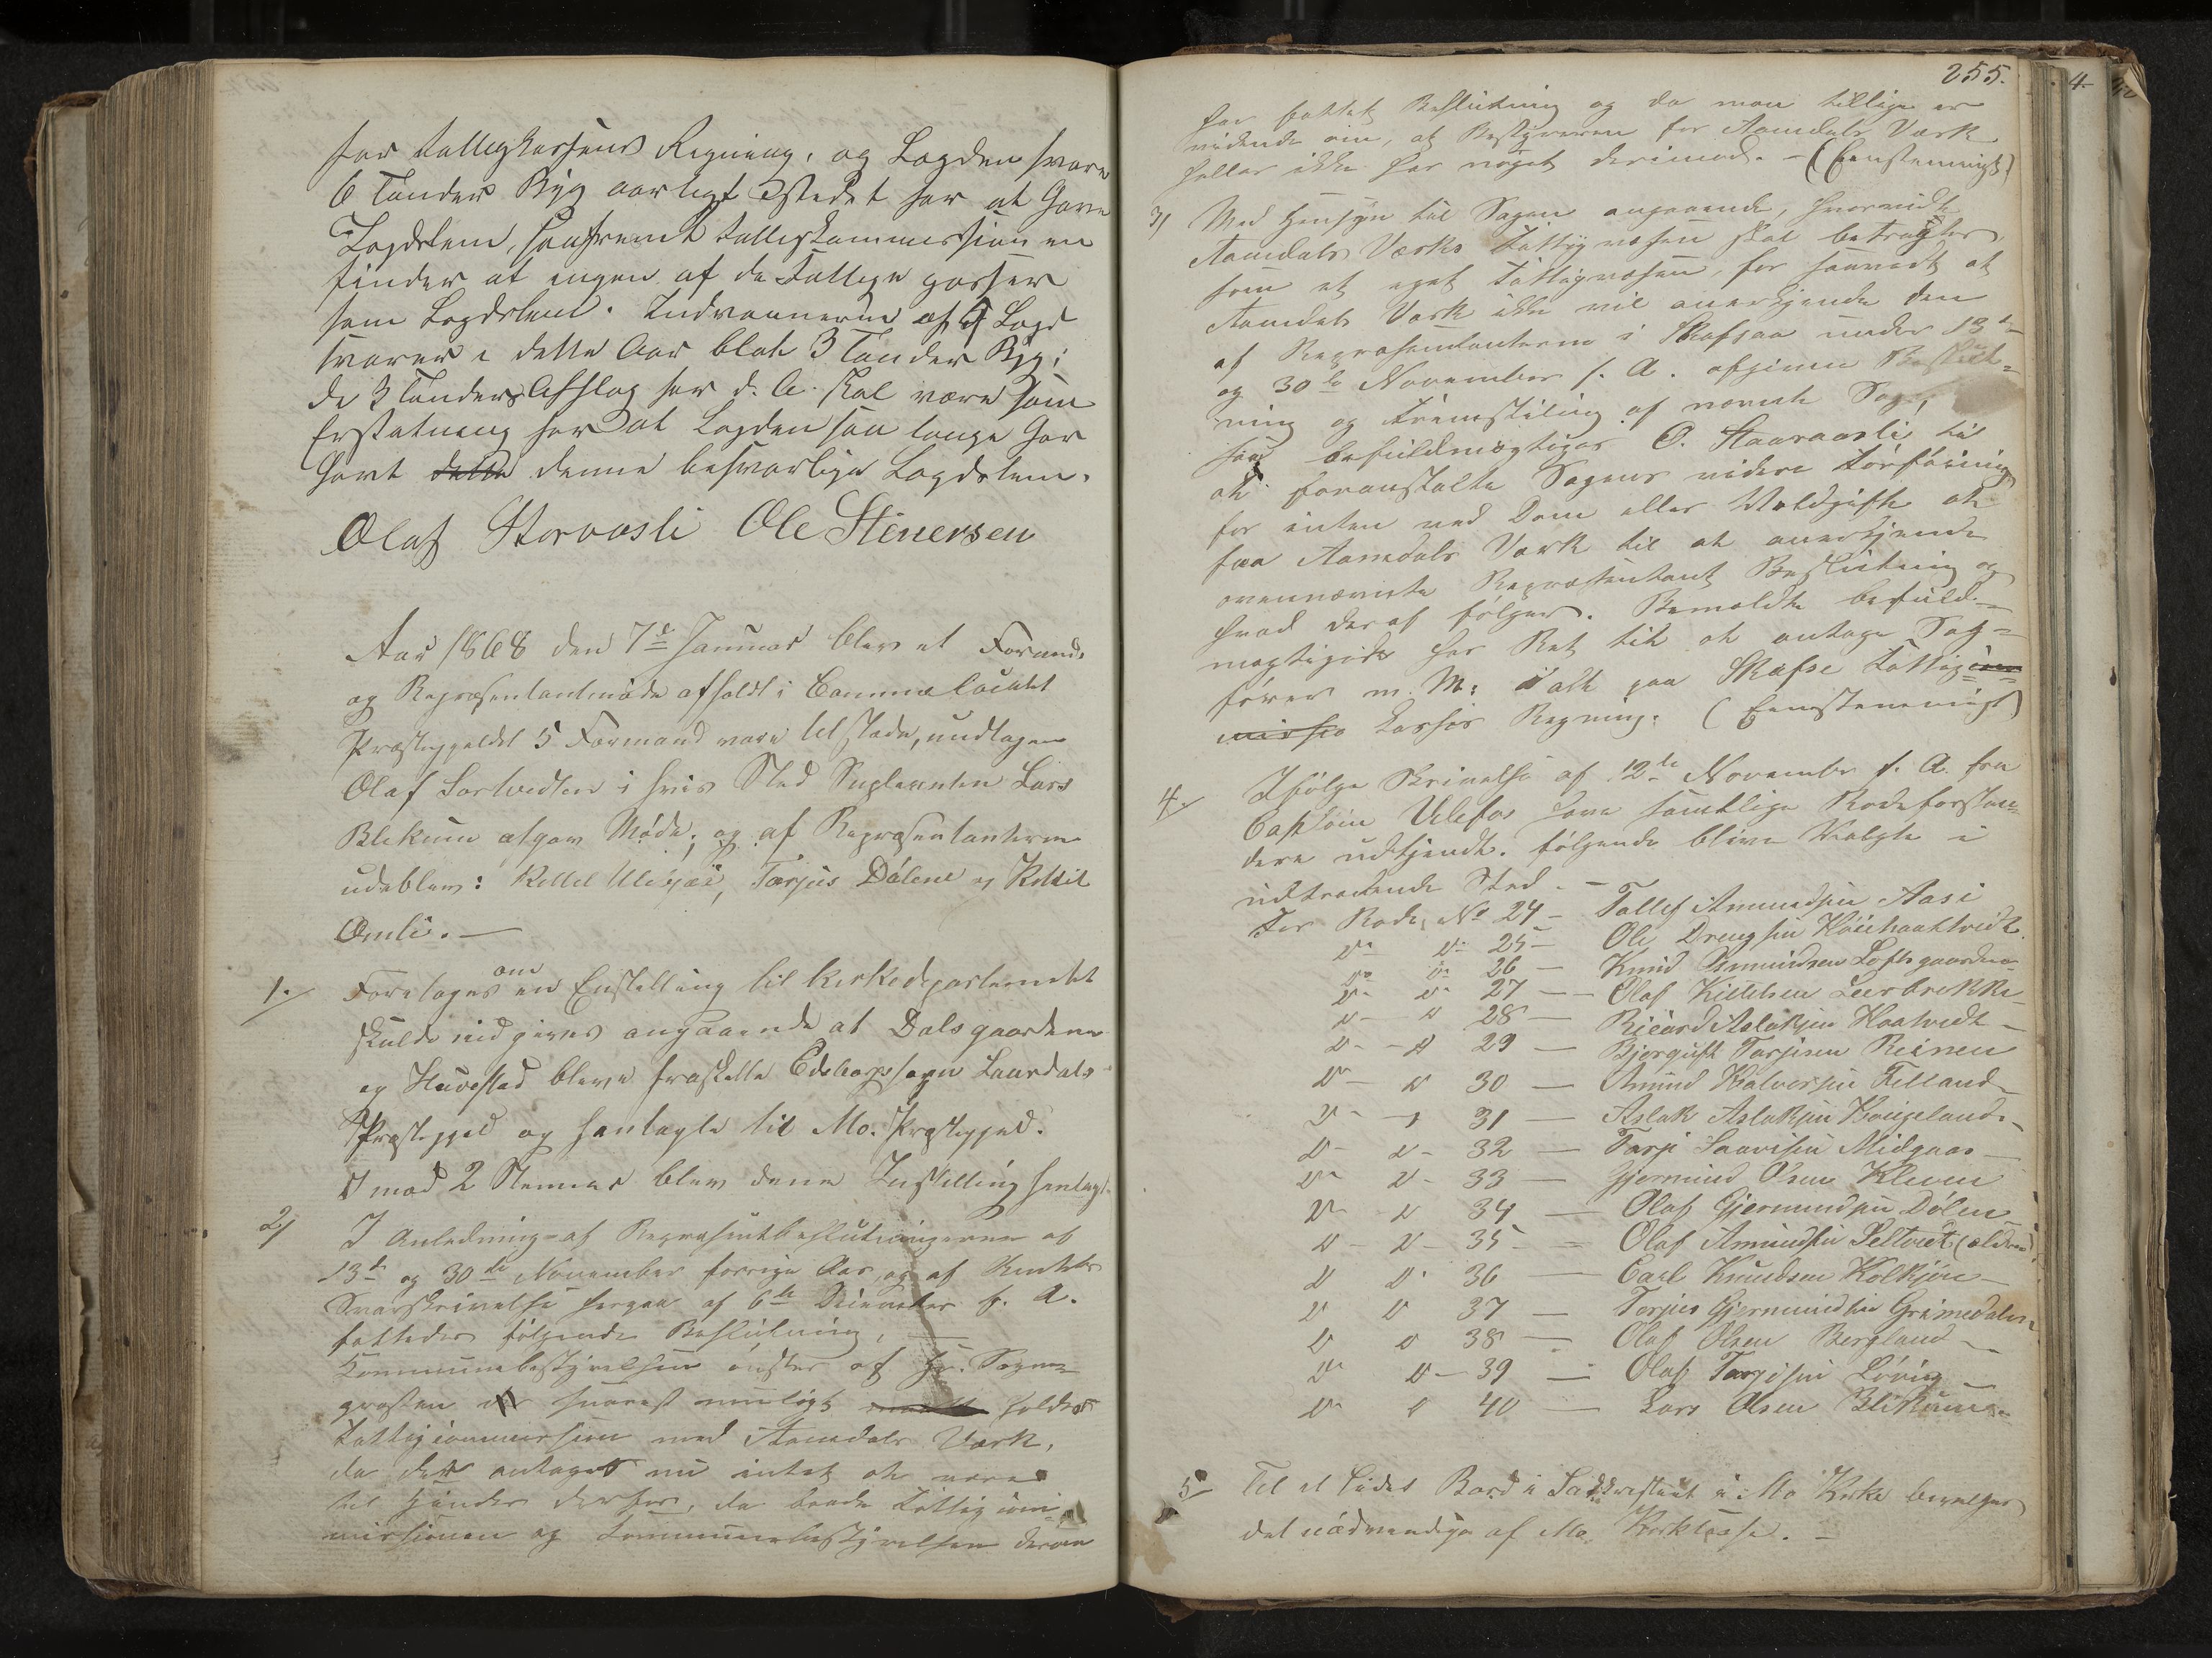 for Fattigkassens Regning, og Lægden svare
6 Tønder Byg aarligt istedet for at have
Lægdslem, saafremt Fattigkommissionen
finder at ingen af de Fattige passer
som Lægdslem. Indvaanerne af Lægd
svarer i dette Aar blot 3 Tønder Byg;
de 3 Tønders Afslag for d. A. skal være som
Erstatning for at Lægden saa længe har
havt dette denne besværlige Lægdslem.
Olaf Storaasli Ole Stenersen
Aar 1868 den 7de Januar blev et Formands
og Repræsentantmøde afholdt i Commuelocalet
Præstegjeldet 5 Formænd vare tilstede, undtagen
Olaf Sortvedten i hvis Sted Suplranten Lars
Blekum afgav Møde; og af Repræsentanterne
udeblev: Kittel Uligjæi, Tarjus Dålene og Kittil
Omli. —
1. Foretoges om en Enstelling til Kirkedepartementet
skulde indgives angaaende at Dalsgaardene
og Huvestad bleve fraskilte Edsborgs sogn Laurdals
Præstegjæld og henlagte til Mo. Præstegjæld.
mod 2 Stemmer blev denne Instilling henlagt.
2) I Anledning af Repræsentbeslutningerne af
13de og 30te November forrige Aar, og af Værkets
Svarskrivelse herpaa af 6te December f. A.
fattedes følgende Beslutning, —
Kommunebestyrelsen ønsker af Hr. Sogne-
præsten der snarest muligt holdes
Fattigcommission med Aamdals Værk,
da det antages nu intet at være
til Hinder derfor, da baade Fattigcom-
missionen og Kommunebestyrelsen derom
255.
har fattet Beslutning og da man tillige er
vidende om, at Bestyreren for Aamdals Værk
heller ikke har noget derimod. — (Eenstemmigt)
3) Med Hensyn til Sagen angaaende, hvorvidt
Aamdals Værks Fattigvæsen skal betragtes
som et eget Fattigvæsen, for saavidt at
Aamdals Værk ikke vil anerkjende den
af Repræsentanterne i Skafsaa under 13de
og 30te November f. A. afgivne Beslut-
ning og Fremstilling af nævnte Sag,
befuldmægtiges O. Staaraasli til
at foranstalte Sagens videre Forføining
for enten ved Dom eller Voldgift at
faa Aamdals Værk til at anerkjende
ovennævnte Repræsentant Beslutning og
hvad deraf følger. Bemeldte befuld-
mægtigede har Ret til at antage Sag-
fører m. M. alt paa Skafse Fattigcom
missio kasses Regning. (Eenstemmigt)
4. Ifølge Skrivelse af 12te November f. A. fra
Captain Ulefos have samtlige Rodeforstan-
dere udtjendt. følgende blive Valgte i
udtrædende Sted. —
For Rode No 24 — Tallef Amundsen Aasi
D. D. 25 — Ole Drengsen
D. D. 26 — Knud Osmundsen Loftsgaarden
D. D. 27 — Olaf Kittilsen Leerbrekke
D. D. 28 — Ricard Aslaksen Haatvedt
D. D. 29 — Bjørgulf Tarjesen Reinen
D. D. 30 — Amund Halvorsen Felland
D. D. 31 — Aslak Aslaksen Haugeland
D. D. 32 — Tarje Saavesen Midgaas
D. D. 33 — Gjermund Olsen Kleven
D. D. 34 — Olaf Gjermundsen Dølen
D. D. 35 — Olaf Amundsen Seltvedt (ældre)
D. D. 36 — Carl Knudsen Kolkjøn
D. D. 37 — Tarjus Gjermundsen Grimedalen
D. D. 38 — Olaf Olsen Bergland
D. D. 39 — Olaf Targesen
D. D. 40 — Lars Olsen Blekum
5 Til et lidet Bord i Sakrestiet i Mo Kirke bevilges
det nødvendige af Mo. Kirkkasse. —